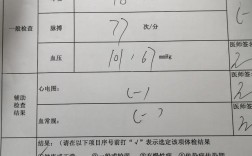 一般检查
脉搏
77
次/分
(-)
血压
101/67
mmHg
医师签
辅助
检查
结果
心电图:
(-)
医师签
血常规:
(-)
结果:(请在以下项目序号前打“√”表示选定该项体检结果